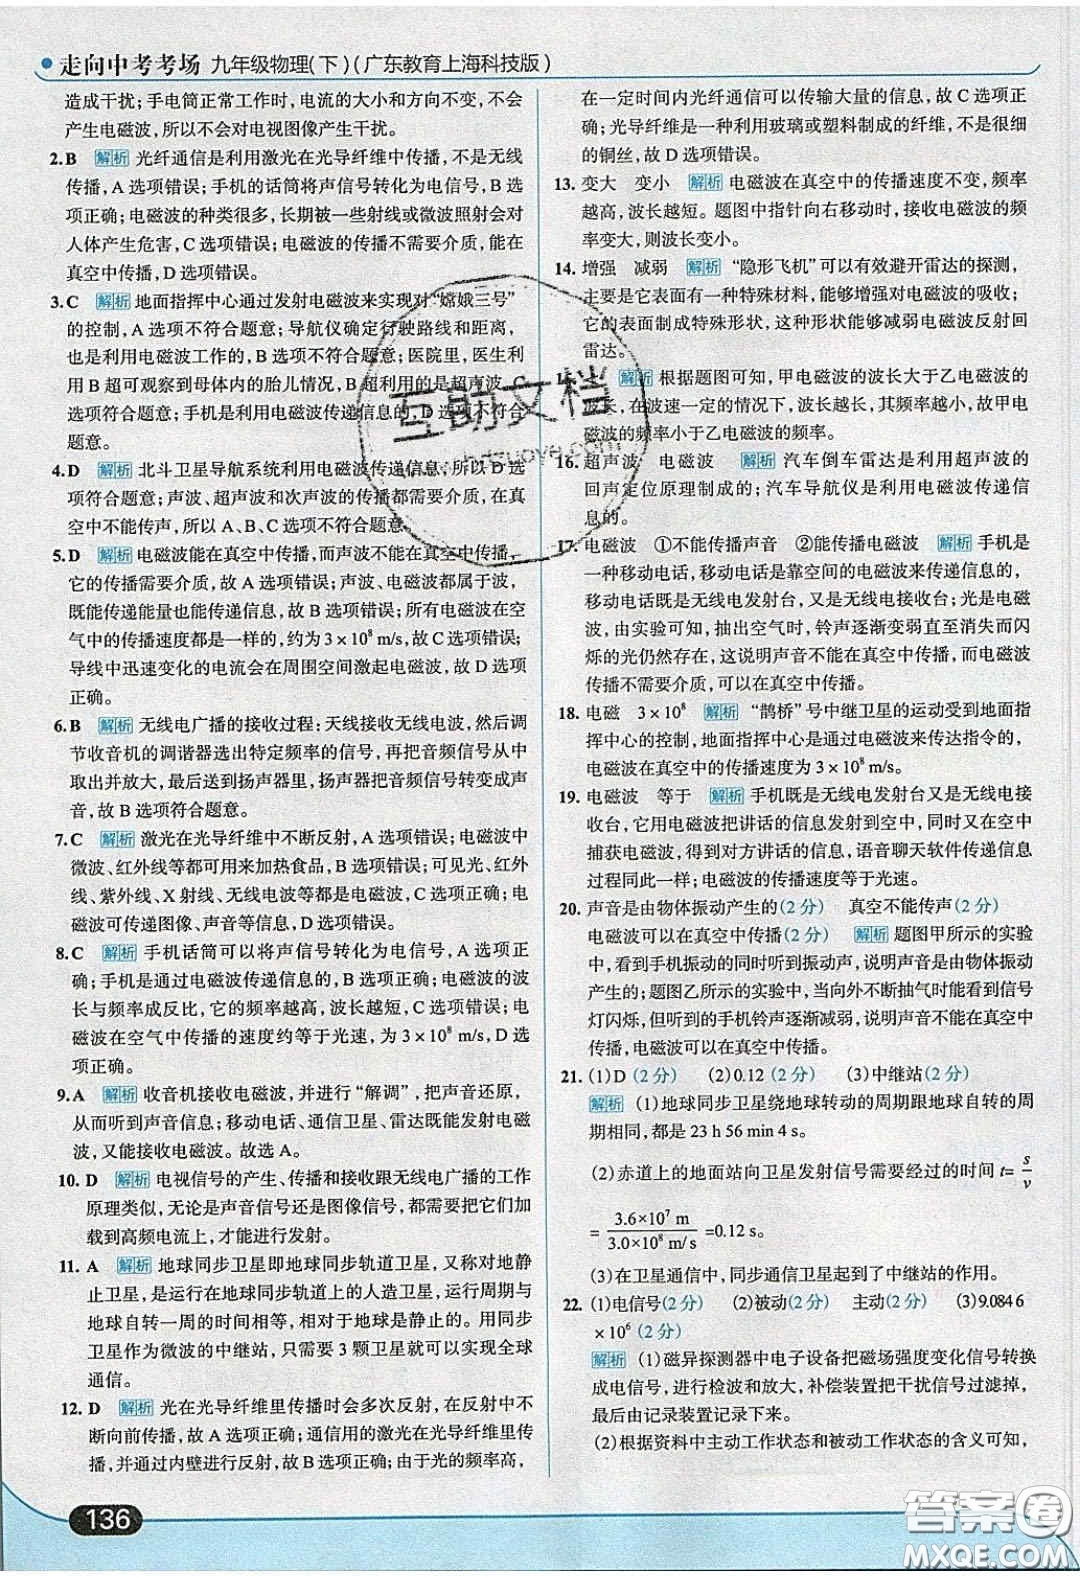 走向中考考场 九年级物理(下)(广东教育上海科技版)
造成干扰;手电筒正常工作时,电流的大小和方向不变,不会
产生电磁波,所以不会对电视图像产生干扰。
2.B 解析 光纤通信是利用激光在光导纤维中传播,不是无线
传播,A选项错误;手机的话筒将声信号转化为电信号,B选
项正确;电磁波的种类很多,长期被一些射线或微波照射会对
人体产生危害,C选项错误;电磁波的传播不需要介质,能在
真空中传播,D选项错误。
3.C 解析 地面指挥中心通过发射电磁波来实现对“嫦娥三号”
的控制,A选项不符合题意;导航仪确定行驶路线和距离,
也是利用电磁波工作的,B选项不符合题意;医院里,医生利
用B超可观察到母体内的胎儿情况,B超利用的是超声波,
选项符合题意;手机是利用电磁波传递信息的,D选项不符合
题意。
4.D 解析 北斗卫星导航系统利用电磁波传递信息,所以D选
项符合题意;声波、超声波和次声波的传播都需要介质,在真
空中不能传声,所以A、B、C选项不符合题意。
5.D 解析 电磁波能在真空中传播,而声波不能在真空中传播,
它的传播需要介质,故A选项错误;声波、电磁波都属于波,
既能传递能量也能传递信息,故B选项错误;所有电磁波在空
气中的传播速度都是一样的,约为3×10⁸ m/s,故C选项错误;
导线中迅速变化的电流会在周围空间激起电磁波,故D选项
正确。
6.B 解析 无线电广播的接收过程:天线接收无线电波,然后调
节收音机的调谐器选出特定频率的信号,再把音频信号从中
取出并放大,最后送到扬声器里,扬声器把音频信号转变成声
音,故B选项符合题意。
7.C 解析 激光在光导纤维中不断反射,A选项错误;电磁波中
微波、红外线等都可用来加热食品,B选项错误;可见光、红外
线、紫外线、X射线、无线电波等都是电磁波,C选项正确;电
磁波可传递图像、声音等信息,D选项错误。
8.C 解析 手机话筒可以将声信号转化为电信号,A选项正
确;手机是通过电磁波传递信息的,B选项正确;电磁波的波
长与频率成反比,它的频率越高,波长越短,C选项错误;电
磁波在空气中传播的速度约等于光速,为3×10⁸ m/s,D选
项正确。
9.A 解析 收音机接收电磁波,并进行“解调”,把声音还原,
从而听到声音信息;移动电话、通信卫星、雷达既能发射电磁
波,又能接收电磁波。故选A。
10.D 解析 电视信号的产生、传播和接收跟无线电广播的工作
原理类似,无论是声音信号还是图像信号,都需要把它们加
载到高频电流上,才能进行发射。
11.A 解析 地球同步卫星即地球同步轨道卫星,又称对地静
止卫星,是运行在地球同步轨道上的人造卫星,运行周期与
地球自转一周的时间相等,相对于地球是静止的。用同步
卫星作为微波的中继站,只需要3颗卫星就可以实现全球
通信。
12.D 解析 光在光导纤维里传播时会多次反射,在反射中不
断向前传播,故A选项正确;通信用的激光在光导纤维里传
播,并通过内壁进行反射,故B选项正确;由于光的频率高,
在一定时间内光纤通信可以传输大量的信息,故C选项正
确;光导纤维是利用玻璃或塑料制成的纤维,不是很细
的铜丝,故D选项错误。
13.变大 变小 解析 电磁波在真空中的传播速度不变,频率
越高,波长越短。题图中指针向右移动时,接收电磁波的频
率变大,则波长变小。
14.增强 减弱 解析 “隐形飞机”可以有效避开雷达的探测,
主要是它表面有一种特殊材料,能够增强对电磁波的吸收;
它的表面制成特殊形状,这种形状能够减弱电磁波反射回
雷达。
解析 根据题图可知,甲电磁波的波长大于乙电磁波的
波长,在波速一定的情况下,波长越长,其频率越小,故甲电
磁波的频率小于乙电磁波的频率。
16.超声波 电磁波 解析 汽车倒车雷达是利用超声波的
回声定位原理制成的;汽车导航仪是利用电磁波传递信
息的。
17.电磁波 ①不能传播声音 ②能传播电磁波 解析 手机是
一种移动电话,移动电话是靠空间的电磁波来传递信息的,
移动电话既是无线电发射台,又是无线电接收台;光是电磁
波,由实验可知,抽出空气时,铃声逐渐变弱直至消失而闪
烁的光仍然存在,这说明声音不能在真空中传播,而电磁波
传播不需要介质,可以在真空中传播。
18.电磁 3×10⁸ 解析 “鹊桥”号中继卫星的运动受到地面指
挥中心的控制,地面指挥中心是通过电磁波来传达指令的,
电磁波在真空中的传播速度为3×10⁸ m/s。
19.电磁波 等于 解析 手机既是无线电发射台又是无线电接
收台,它用电磁波把讲话的信息发射到空中,同时又在空中
捕获电磁波,得到对方讲话的信息,语音聊天软件传递信息
过程同此一样;电磁波的传播速度等于光速。
20.声音是由物体振动产生的(2分) 真空不能传声(2分)
电磁波可以在真空中传播(2分) 解析 题图甲所示的实验
中,看到手机振动的同时听到振动声,说明声音是由物体振动
产生的;题图乙所示的实验中,当向外不断抽气时能看到信号
灯闪烁,但听到的手机铃声逐渐减弱,说明声音不能在真空中
传播,电磁波可以在真空中传播。
21.(1)D(2分) (2)0.12(2分) (3)中继站(2分)
解析 (1)地球同步卫星绕地球转动的周期跟地球自转的周
期相同,都是23 h 56 min 4 s。
(2)赤道上的地面站向卫星发射信号需要经过的时间t=s/v
=3.6×10⁷ m/3.0×10⁸ m/s=0.12 s。
(3)在卫星通信中,同步通信卫星起到了中继站的作用。
22.(1)电信号(2分) (2)被动 主动(2分) (3)9.084 6
×10⁶(2分)
解析 (1)磁异探测器中电子设备把磁场强度变化信号转换
成电信号,进行检波和放大,补偿装置把干扰信号过滤掉,
最后由记录装置记录下来。
(2)根据资料中主动工作状态和被动工作状态的含义可知,
136
互助文档
答案圈
MXQE.COM